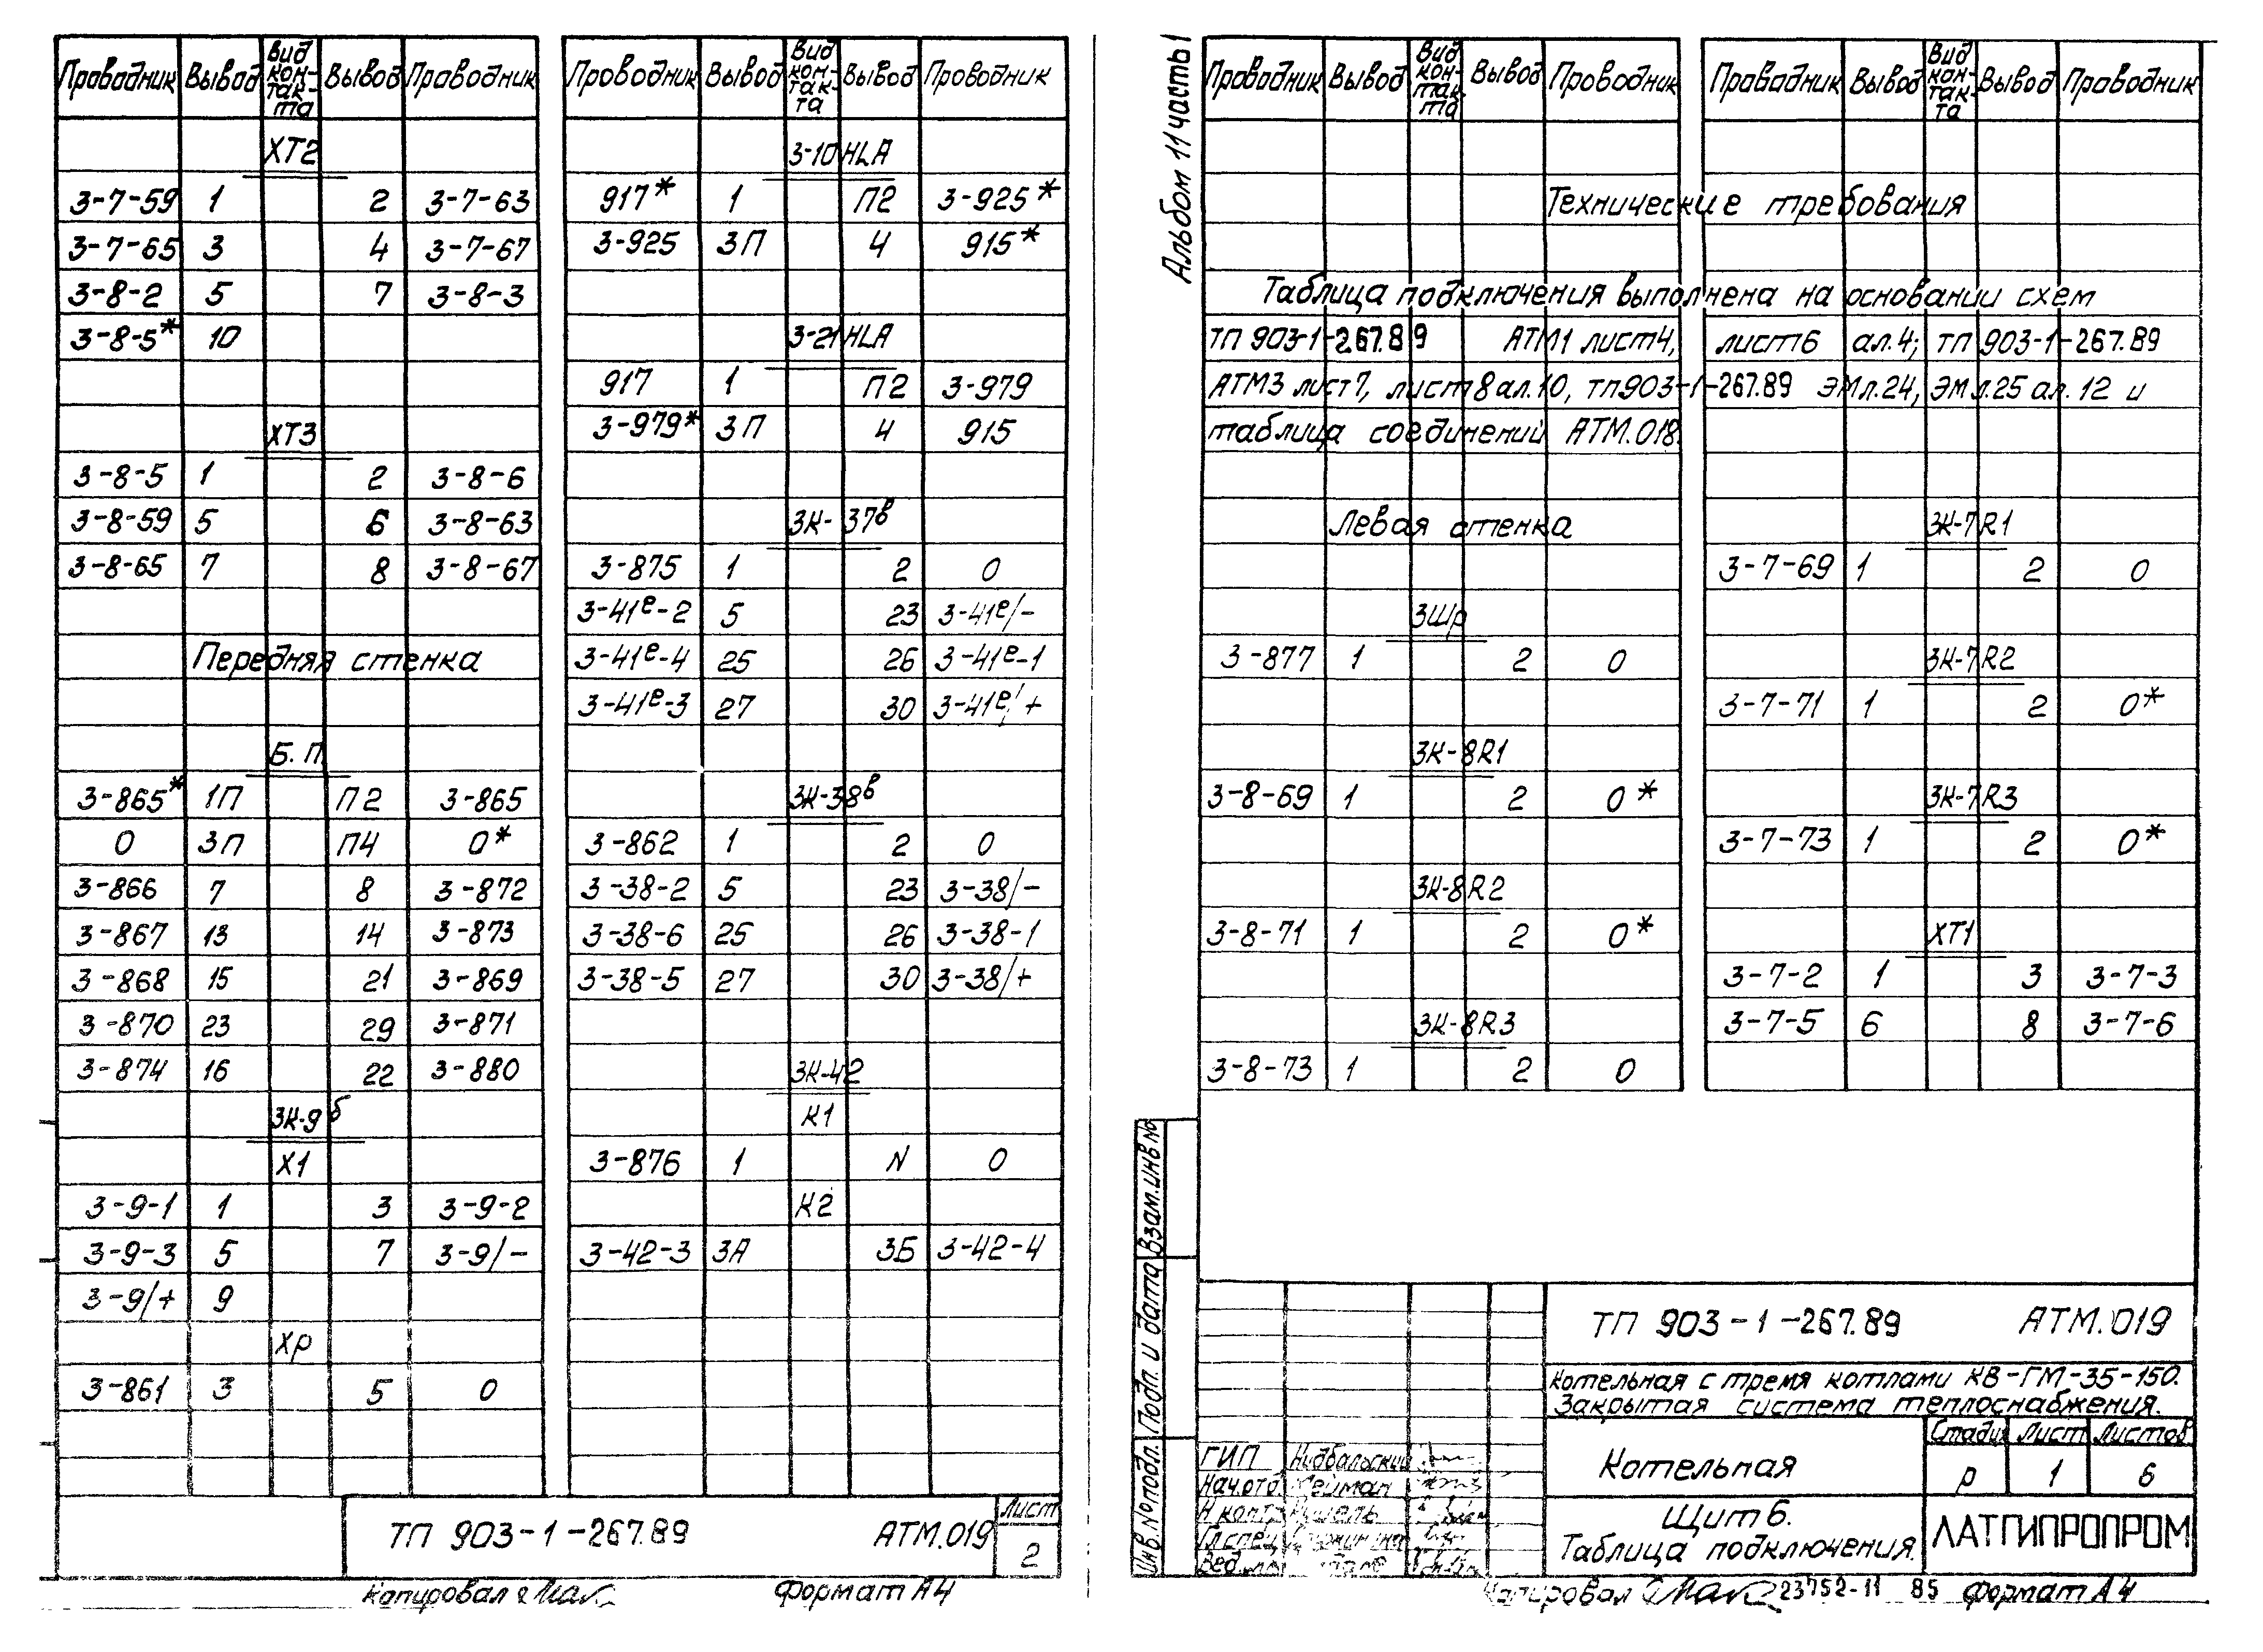 Проводник Вывод Вид кон-так-та Вывод Проводник
ХТ2
3-7-59 1 2 3-7-63
3-7-65 3 4 3-7-67
3-8-2 5 7 3-8-3
3-8-5* 10
ХТ3
3-8-5 1 2 3-8-6
3-8-59 5 6 3-8-63
3-8-65 7 8 3-8-67
Передняя стенка
Б.П.
3-865* 1П П2 3-865
0 3П П4 0*
3-866 7 8 3-872
3-867 13 14 3-873
3-868 15 21 3-869
3-870 23 29 3-871
3-874 16 22 3-880
3К-9б
Х1
3-9-1 1 3 3-9-2
3-9-3 5 7 3-9/-
3-9/+ 9
Хр
3-861 3 5 0
Проводник Вывод Вид кон-так-та Вывод Проводник
3-10HLA
917* 1 П2 3-925*
3-925 3П 4 915*
3-21HLA
917 1 П2 3-979
3-979* 3П 4 915
3К-37в
3-875 1 2 0
3-41е-2 5 23 3-41е/-
3-41е-4 25 26 3-41е-1
3-41е-3 27 30 3-41е/+
3К-38в
3-862 1 2 0
3-38-2 5 23 3-38/-
3-38-6 25 26 3-38-1
3-38-5 27 30 3-38/+
3К-42
К1
3-876 1 N 0
К2
3-42-3 3А 3Б 3-42-4
ТП 903-1-267.89 АТМ.019
Лист
2
Копировал Формат А4
Альбом 11 часть 1
Проводник Вывод Вид кон-так-та Вывод Проводник
Проводник Вывод Вид кон-так-та Вывод Проводник
Технические требования
Таблица подключения выполнена на основании схем
ТП 903-1-267.89 АТМ1 лист4, лист6 ал.4; ТП 903-1-267.89
АТМ3 лист7, лист8 ал.10, тп903-1-267.89 ЭМл.24, ЭМл.25 ал.12 и
таблица соединений АТМ.018.
Левая стенка
3Шр
3-877 1 2 0
3К-8R1
3-8-69 1 2 0*
3К-8R2
3-8-71 1 2 0*
3К-8R3
3-8-73 1 2 0
3К-7R1
3-7-69 1 2 0
3К-7R2
3-7-71 1 2 0*
3К-7R3
3-7-73 1 2 0*
ХТ1
3-7-2 1 3 3-7-3
3-7-5 6 8 3-7-6
Взам.инв№
Подп. и дата
Инв.№подл.
ТП 903-1-267.89 АТМ.019
Котельная с тремя котлами КВ-ГМ-35-150.
Закрытая система теплоснабжения.
Котельная
Стадия Лист Листов
Р 1 6
Щит 6.
Таблица подключения.
ЛАТГИПРОПРОМ
ГИП Нидбальский
Нач.отд.
Н контр
Гл.спец.
Вед.
Копировал 23752-11 85 формат А4